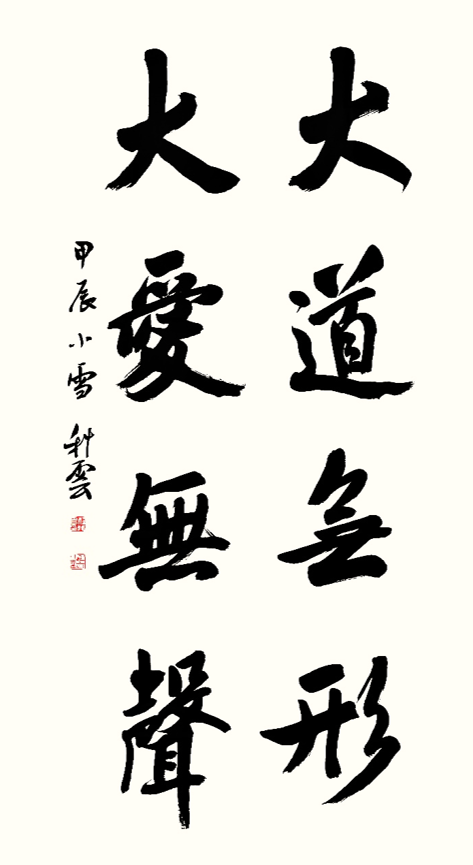 大道無形
大愛無聲
甲辰小雪 科雲